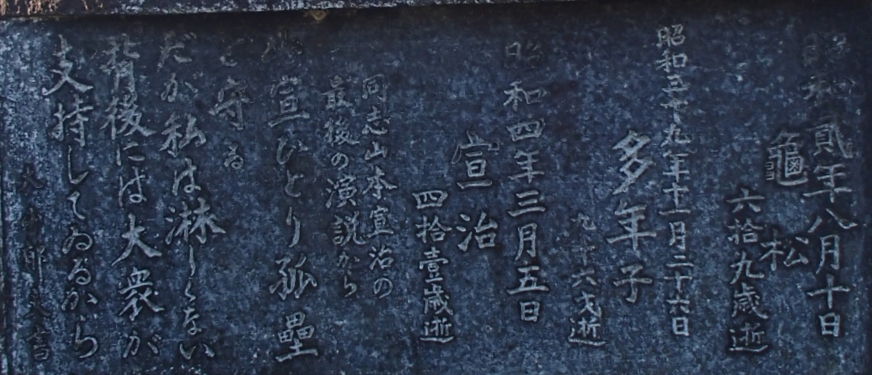 昭和貳年八月十日
龜松
六拾九歳逝
昭和三十九年十一月二十六日
多年子
九十六才逝
昭和四年三月五日
宣治
四拾壹歳逝
同志山本宣治の
最後の演説から
山宣ひとり孤塁
を守る
だが私は淋しくない
背後には大衆が
支持してゐるから